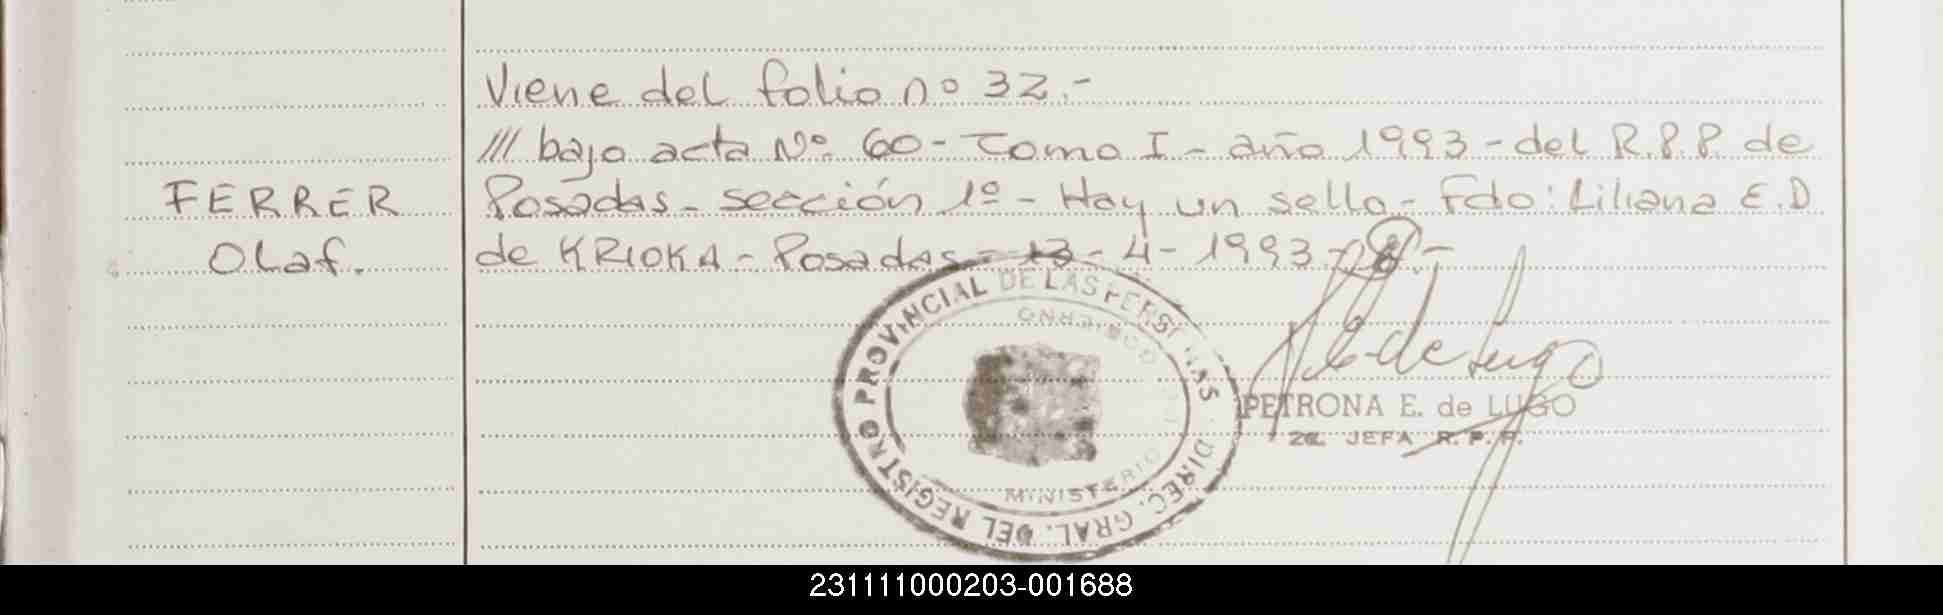 Viene del folio nº 32.-
/// bajo acta Nº 60 - Tomo I - año 1993 - del R.P.P. de
FERRER
Posadas - sección 1º - Hay un sello - Fdo: Liliana E.D
Olaf.
de KRIOKA - Posadas - 13 - 4 - 1993 -
DIREC. GRAL. DEL REGISTRO PROVINCIAL DE LAS PERSONAS
MINISTERIO
GOBIERNO
E. de Lugo
PETRONA E. de LUGO
2a. JEFA R.P.P.
231111000203-001688